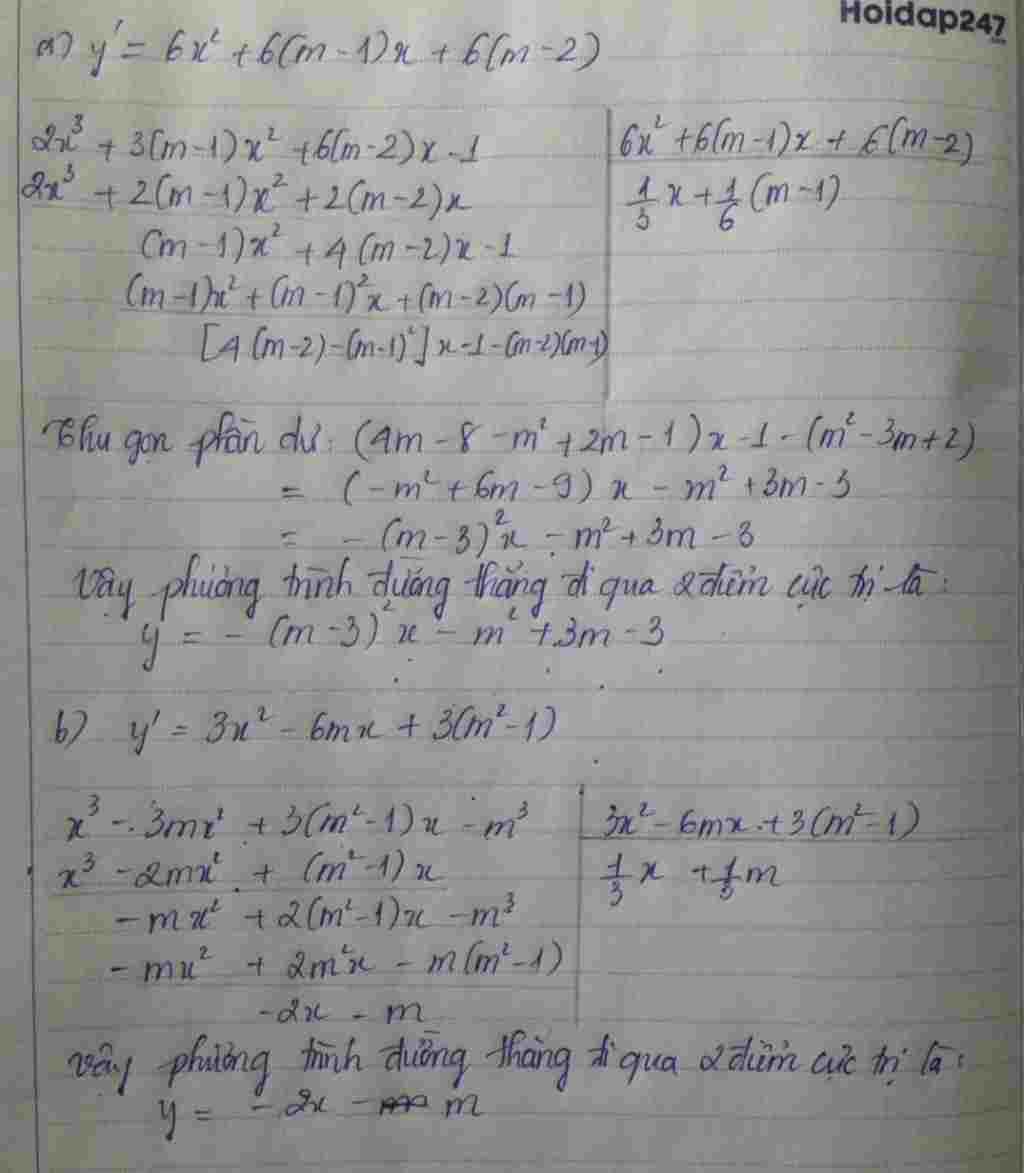 Hoidap247
a) y' = 6x² + 6(m-1)x + 6(m-2)
2x³ + 3(m-1)x² + 6(m-2)x - 1 | 6x² + 6(m-1)x + 6(m-2)
2x³ + 2(m-1)x² + 2(m-2)x | 1/3 x + 1/6 (m-1)
(m-1)x² + 4(m-2)x - 1
(m-1)x² + (m-1)²x + (m-2)(m-1)
[4(m-2)-(m-1)²]x - 1 - (m-2)(m-1)
Thu gọn phần dư: (4m - 8 - m² + 2m - 1)x - 1 - (m² - 3m + 2)
= (-m² + 6m - 9)x - m² + 3m - 3
= -(m-3)²x - m² + 3m - 3
Vậy phương trình đường thẳng đi qua 2 điểm cực trị là:
y = -(m-3)²x - m² + 3m - 3
b) y' = 3x² - 6mx + 3(m²-1)
x³ - 3mx² + 3(m²-1)x - m³ | 3x² - 6mx + 3(m²-1)
x³ - 2mx² + (m²-1)x | 1/3 x + 1/3 m
-mx² + 2(m²-1)x - m³
-mx² + 2m²x - m(m²-1)
-2x - m
Vậy phương trình đường thẳng đi qua 2 điểm cực trị là:
y = -2x - m